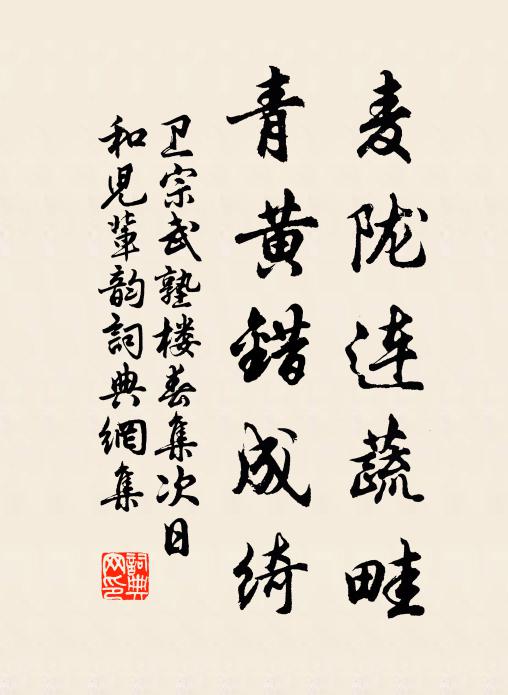 麦陇连蔬畦
青黄錯成綺
卫宗武塾楼春集次日
和儿辈韵詞典網集
詞典网印